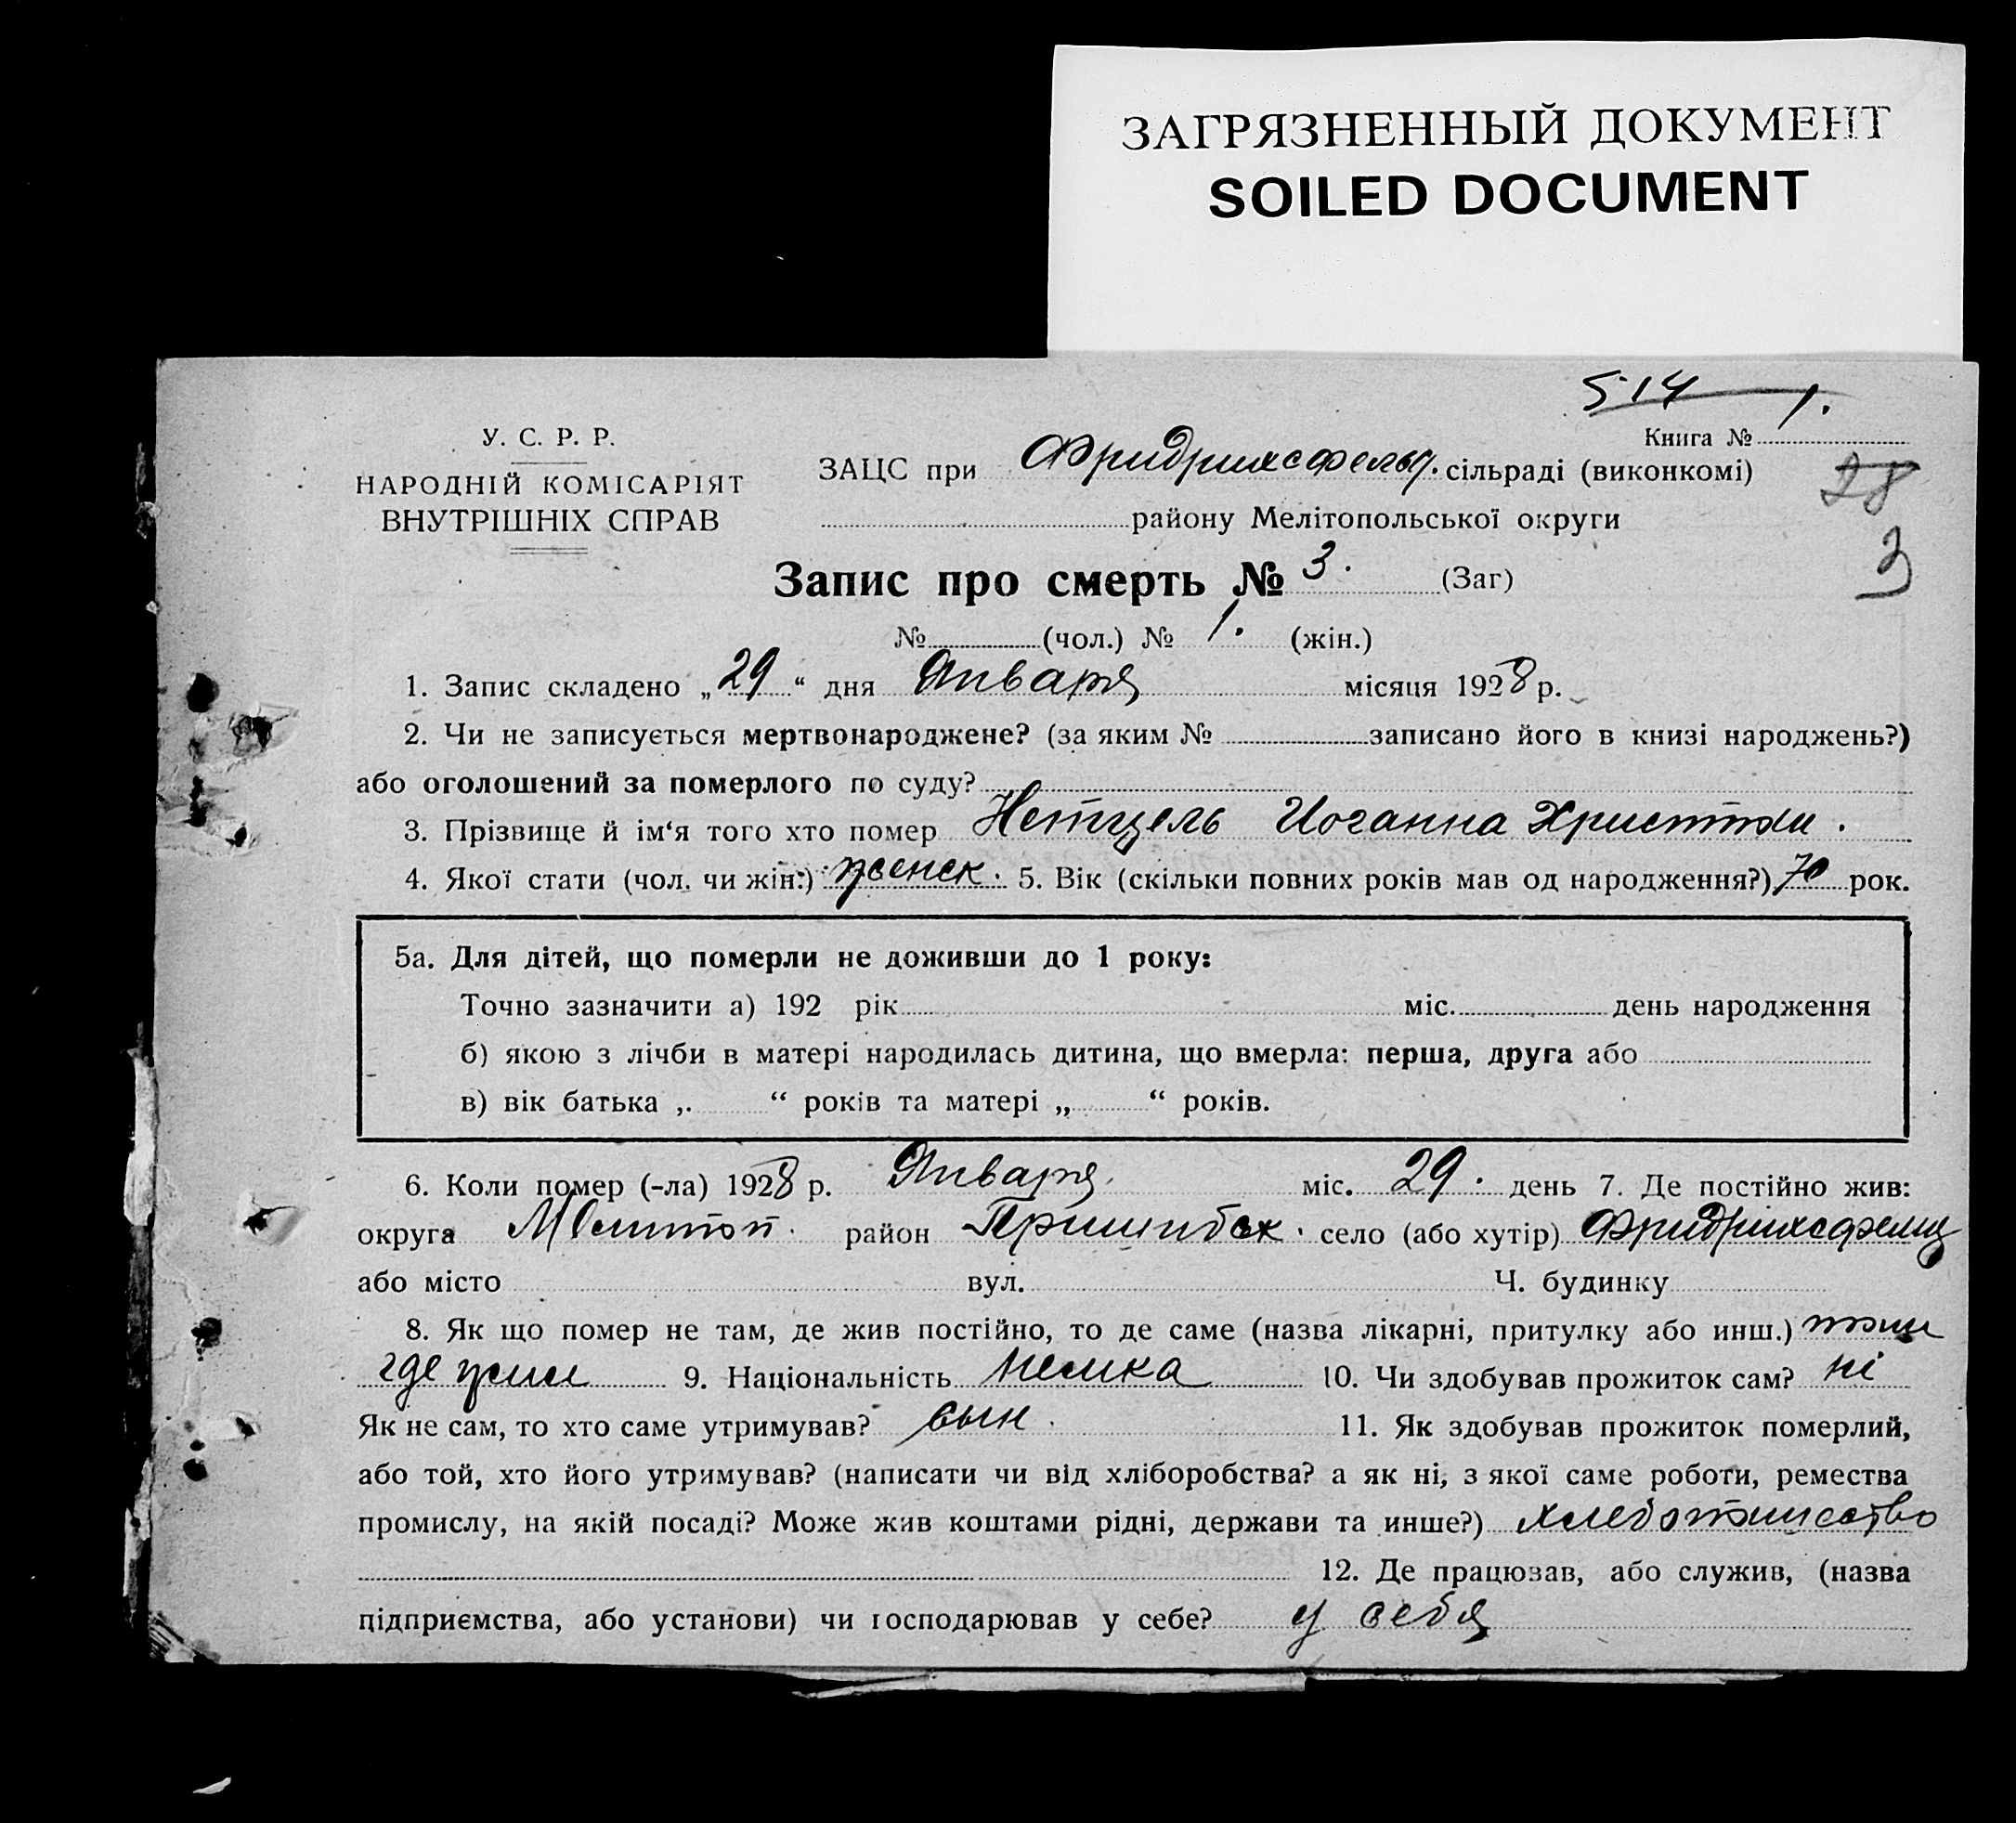 ЗАГРЯЗНЕННЫЙ ДОКУМЕНТ
SOILED DOCUMENT
514 1.
Книга №
У. С. Р. Р.
НАРОДНІЙ КОМІСАРІЯТ
ВНУТРІШНІХ СПРАВ
ЗАЦС при Фридрихсфельд. сільраді (виконкомі)
28
району Мелітопольської округи
3
Запис про смерть № 3. (Заг)
№ (чол.) № 1. (жін.)
1. Запис складено „29“ дня Января місяця 1928 р.
2. Чи не записується мертвонароджене? (за яким № записано його в книзі народжень?)
або оголошений за померлого по суду?
3. Прізвище й ім‘я того хто помер Нетцель Иоганна
4. Якої стати (чол. чи жін.) женск. 5. Вік (скільки повних років мав од народження?) 70 рок.
5а. Для дітей, що померли не доживши до 1 року:
Точно зазначити а) 192 рік міс. день народження
б) якою з лічби в матері народилась дитина, що вмерла: перша, друга або
в) вік батька „ “ років та матері „ “ років.
6. Коли помер (-ла) 1928 р. Января міс. 29. день 7. Де постійно жив:
округа Мелитоп. район Пришибск. село (або хутір)
або місто вул. Ч. будинку
8. Як що помер не там, де жив постійно, то де саме (назва лікарні, притулку або инш.) там
где жил 9. Національність немка 10. Чи здобував прожиток сам? ні
Як не сам, то хто саме утримував? сын. 11. Як здобував прожиток померлий,
або той, хто його утримував? (написати чи від хліборобства? а як ні, з якої саме роботи, ремества
промислу, на якій посаді? Може жив коштами рідні, держави та инше?) хлебопашество
12. Де працював, або служив, (назва
підприємства, або установи) чи господарював у себе? у себя